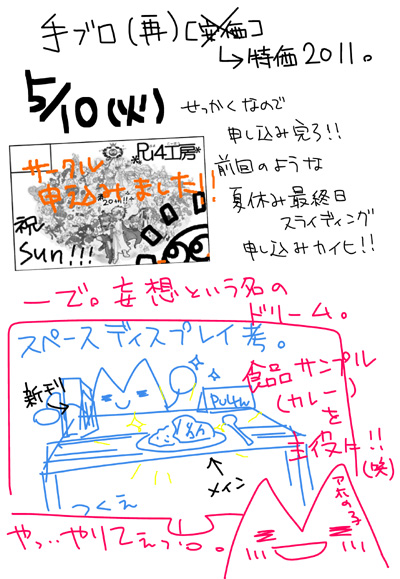 手ブロ(再)[安価]
↳特価2011。
5/10(火)
せっかくなので
申し込み完了!!
前回のような
夏休み最終日
スライディング
申し込みカイヒ!!
Pu4工房
サークル
申し込みました!!
祝
Sun!!!
ーで。妄想という名の
ドリーム。
スペースディスプレイ考。
食品サンプル
(カレー)
を
主役に!!
(咲)
新刊
Pu4
メイン
つくえ
アホの子
やっ…やりてぇっ!!。